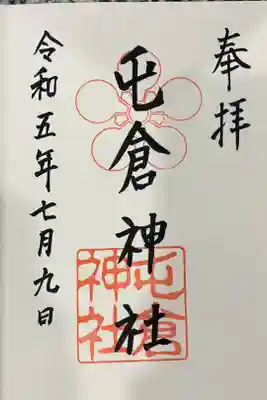 奉拝
屯倉神社
令和五年七月九日
屯倉
神社